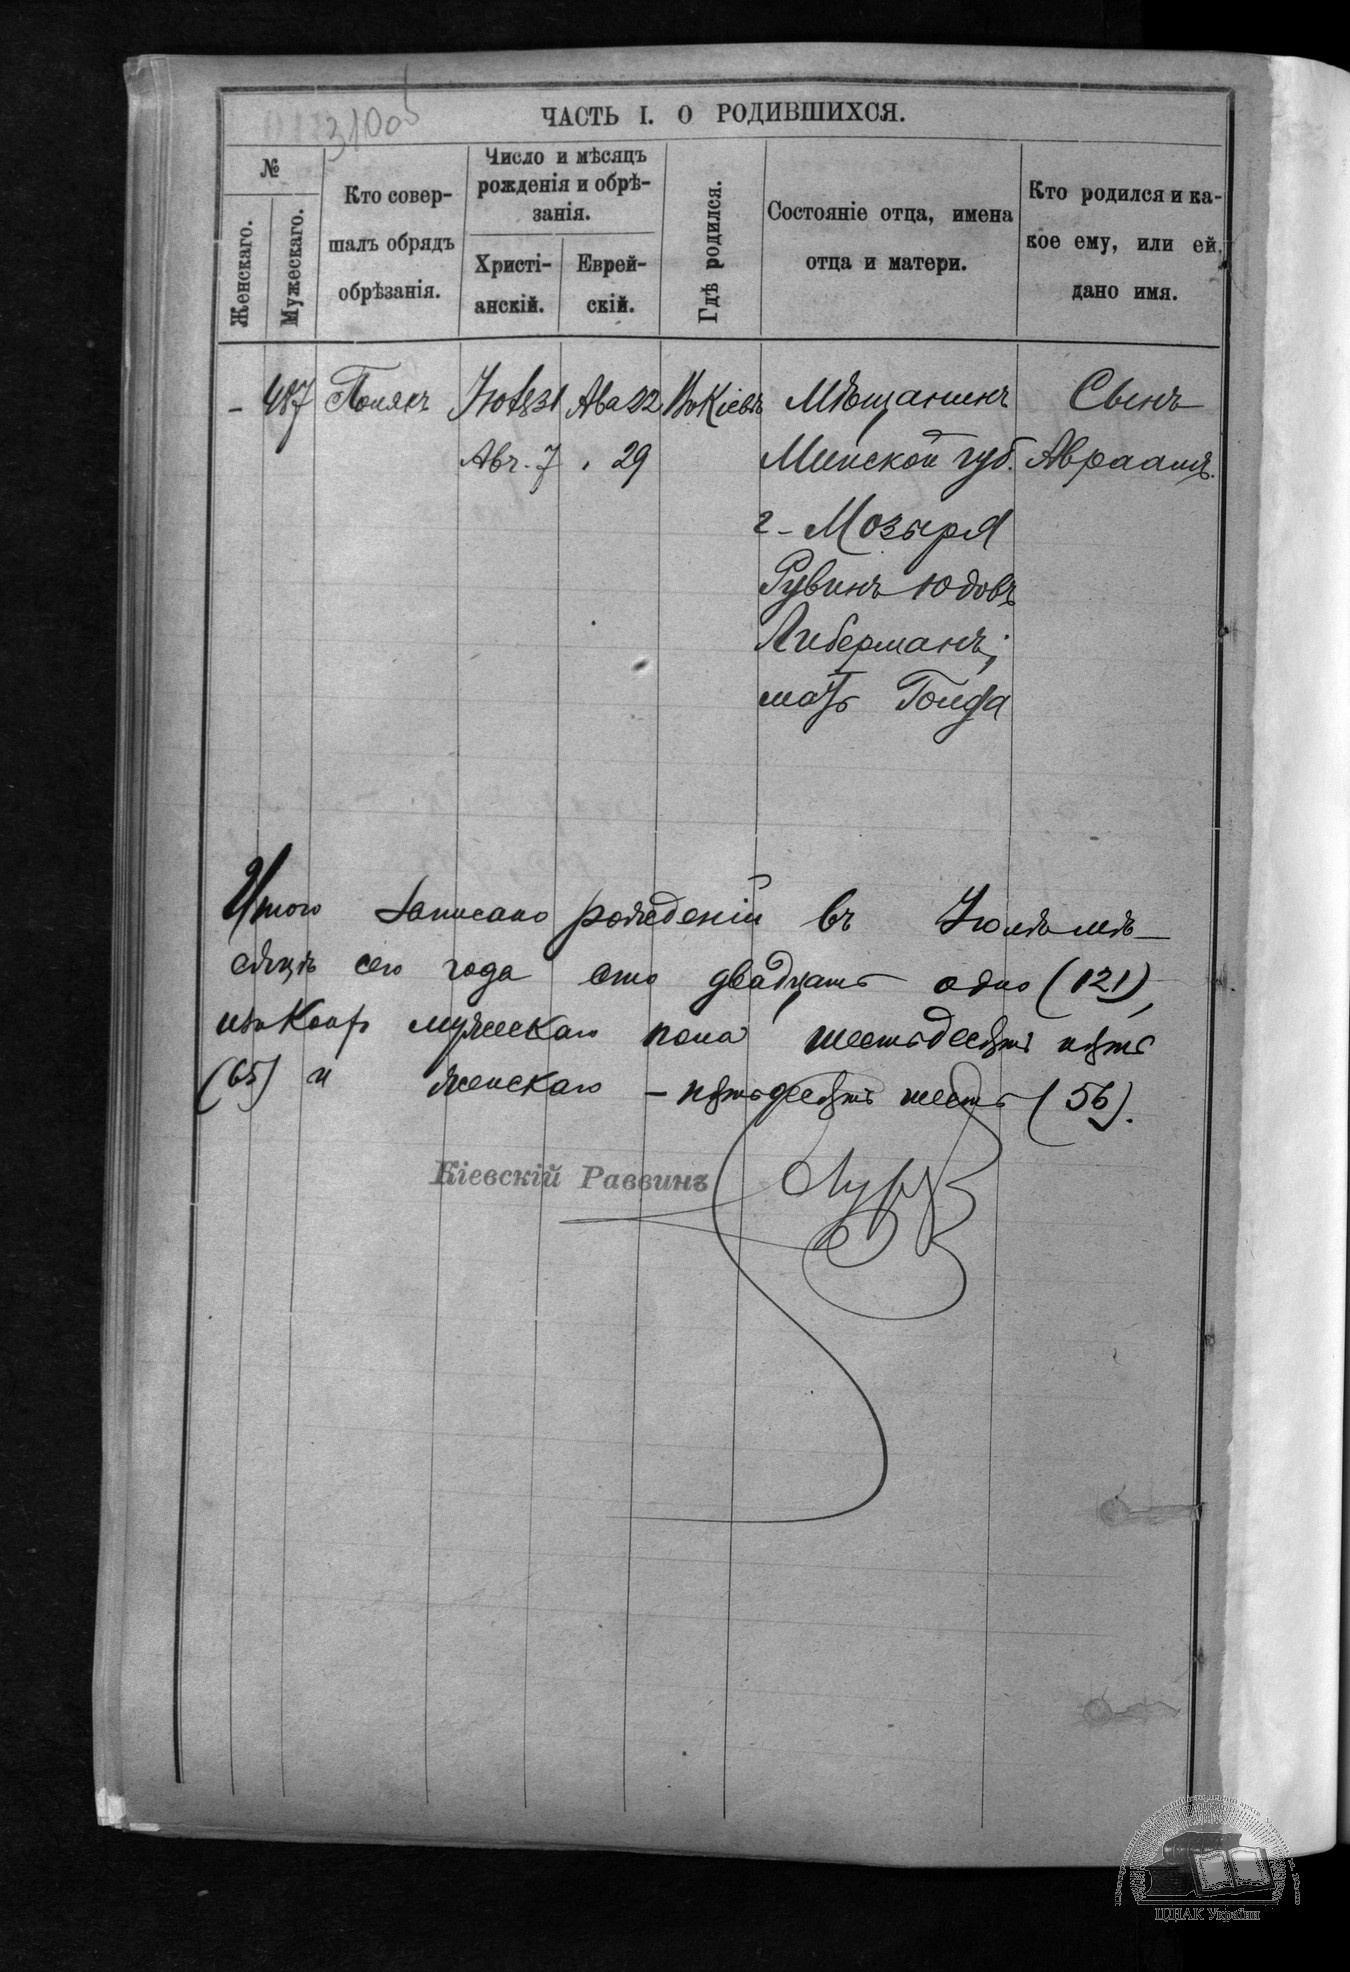 ЧАСТЬ I. О РОДИВШИХСЯ.
№
Женскаго.
Мужескаго.
Кто совер-
шалъ обрядъ
обрѣзанія.
Число и мѣсяцъ
рожденія и обрѣ-
занія.
Христі-
анскій.
Еврей-
скій.
Гдѣ родился.
Состояніе отца, имена
отца и матери.
Кто родился и ка-
кое ему, или ей,
дано имя.
– 487 Полякъ Іюля 31 Ава 22 Въ Кіевѣ Мѣщанинъ Сынъ
Авг. 7 " 29 Минской губ. Авраамъ.
г. Мозыря
Рувинъ Юдовъ
Либерманъ;
мать Голда
Итого записано рожденій въ Іюлѣ мѣ-
сяцѣ сего года сто двадцать одно (121),
изъ коихъ мужескаго пола шестьдесятъ пять
(65) и женскаго – пятьдесятъ шесть (56).
Кіевскій Раввинъ
ЦДІАК України